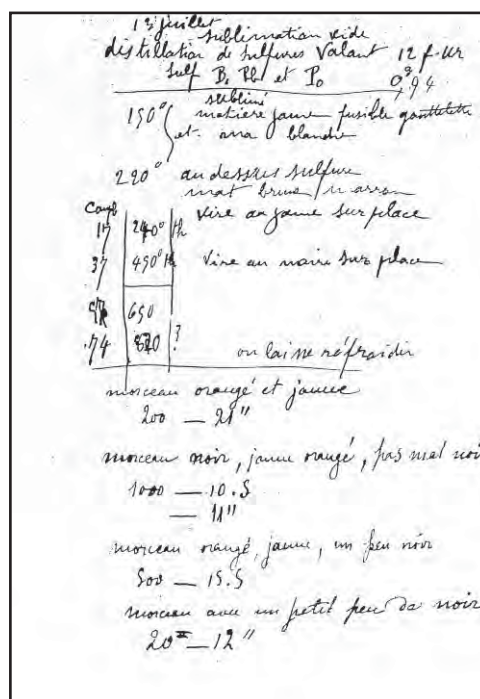 13 juillet
sublimation vide
distillation de sulfures valant 12 f. Ur
Sulf Bi Pb et Po 0g,94
sublimé
150° matière jaune fusible gouttelette
et blanche
220° au dessus sulfure
mat brune/marron
240° th vire au jaune sur place
37 450° th vire au noire sur place
650
74 820 ? on laisse refroidir
morceau orangé et jaune
200 — 21"
morceau noir, jaune orangé, pas mal noir
1000 — 10.5
— 11"
morceau orangé, jaune, un peu noir
500 — 15.5
morceau avec un petit peu de noir
— 12"